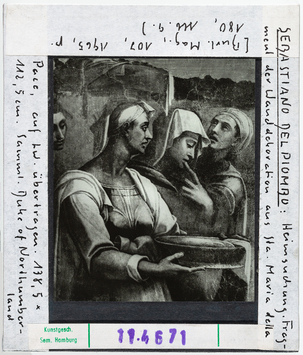 [Burl. Mag., 107, 1965, p.
180, Abb. 9.]
SEBASTIANO DEL PIOMBO: Heimsuchung. Frag-
ment der Wanddekoration aus Sta. Maria della
Pace, auf Lw. übertragen. 178,5 x
112,5 cm. Samml. Duke of Northumber-
land
Kunstgesch.
Sem. Hamburg
11.4671